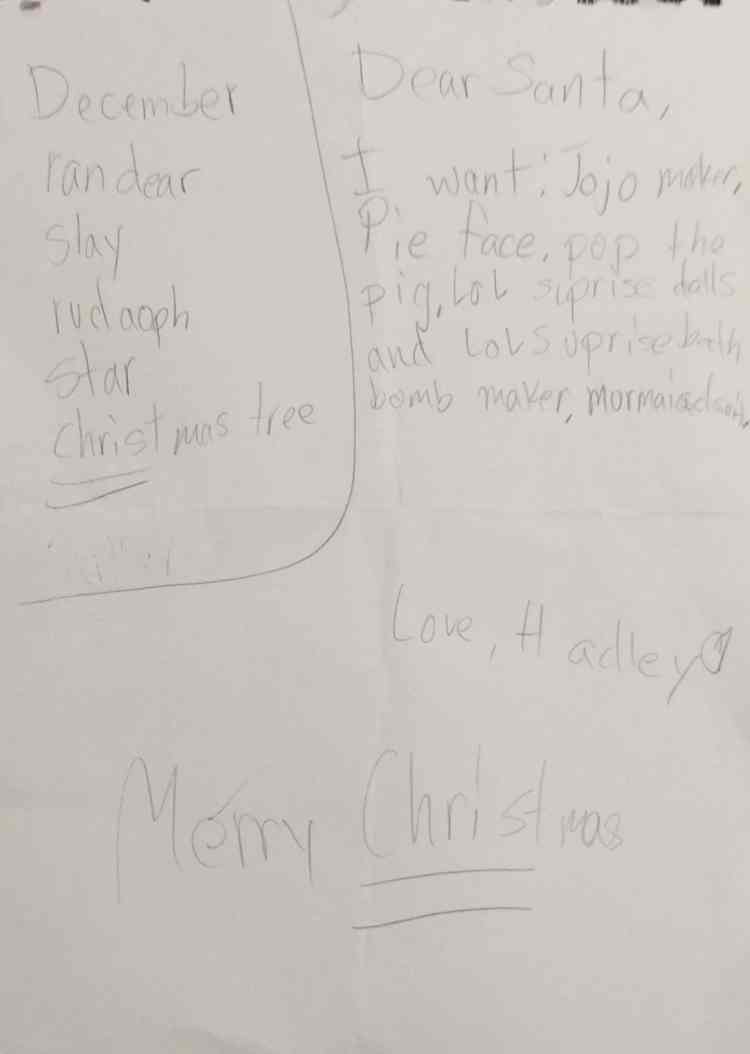 December
randear
slay
rudaoph
star
christmas tree
Dear Santa,
I want: Jojo maker,
Pie face, pop the
pig, LoL siprise dolls
and LoLSuprise bath
bomb maker,
Love, Hadley
Merry Christmas